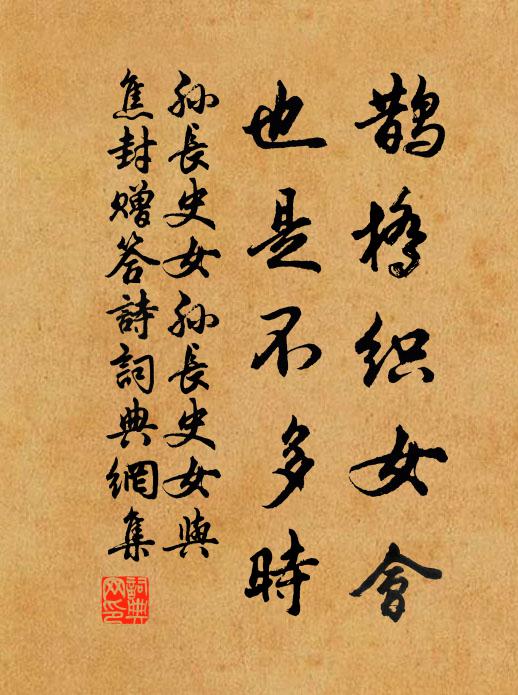 鵲橋织女會
也是不多時
孙長史女孙長史女與
焦封贈答詩詞典網集
詞典网印